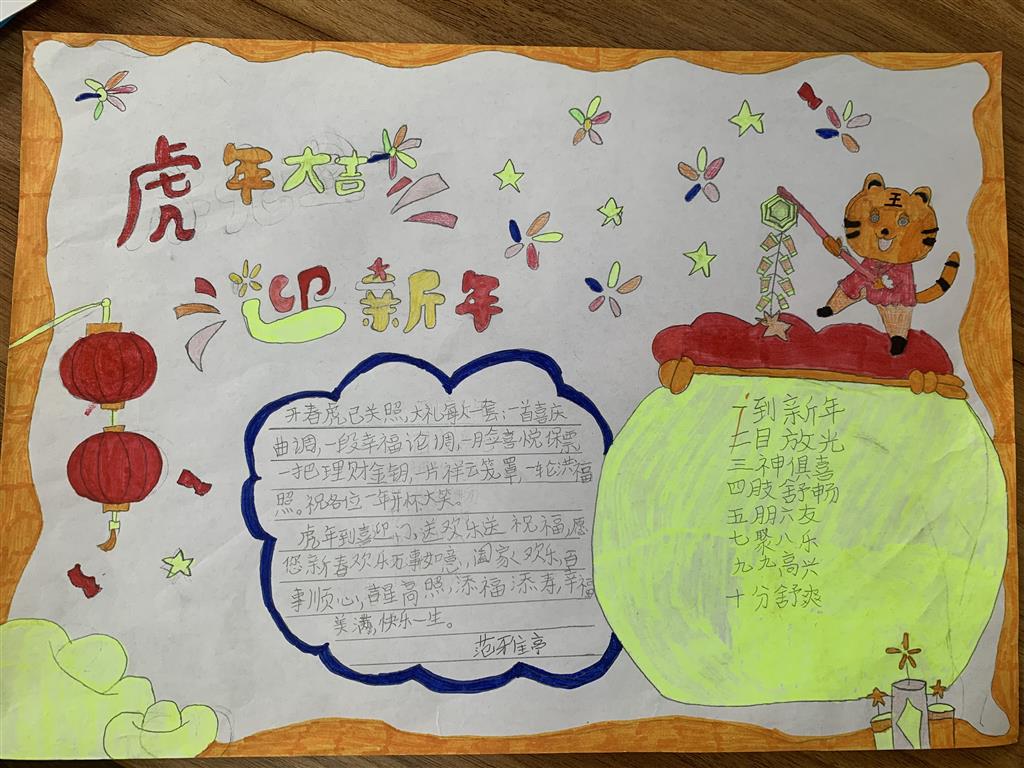 虎年大吉
迎新年
王
开春虎已关照,大礼每人一套:一首喜庆
曲调,一段幸福论调,一月每喜悦保票
一把理财金钥,一片祥云笼罩,一轮洪福
照。祝各位一年开怀大笑。
虎年到喜迎门,送欢乐送祝福,愿
您新春欢乐万事如意,阖家欢乐百
事顺心,吉星高照,添福添寿,幸福
美满,快乐一生。
范雅亭
一到新年
二目放光
三神俱喜
四肢舒畅
五朋六友
七聚八乐
九九高兴
十分舒爽